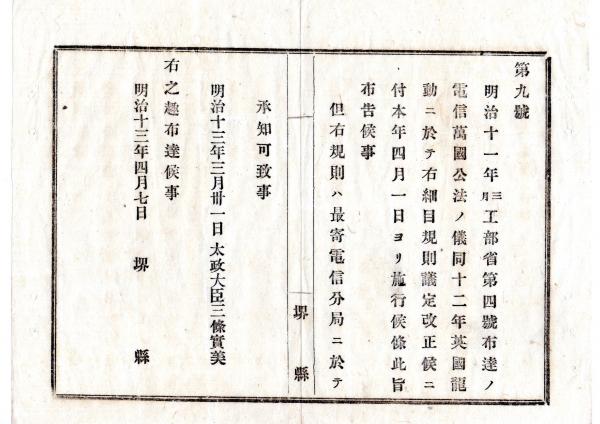 第九號
明治十一年三月工部省第四號布達ノ
電信萬國公法ノ儀同十二年英國龍
動ニ於テ右細目規則議定改正候ニ
付本年四月一日ヨリ施行候條此旨
布告候事
但右規則ハ最寄電信分局ニ於テ
堺縣
承知可致事
明治十三年三月卅一日太政大臣三條實美
右之趣布達候事
明治十三年四月七日 堺縣